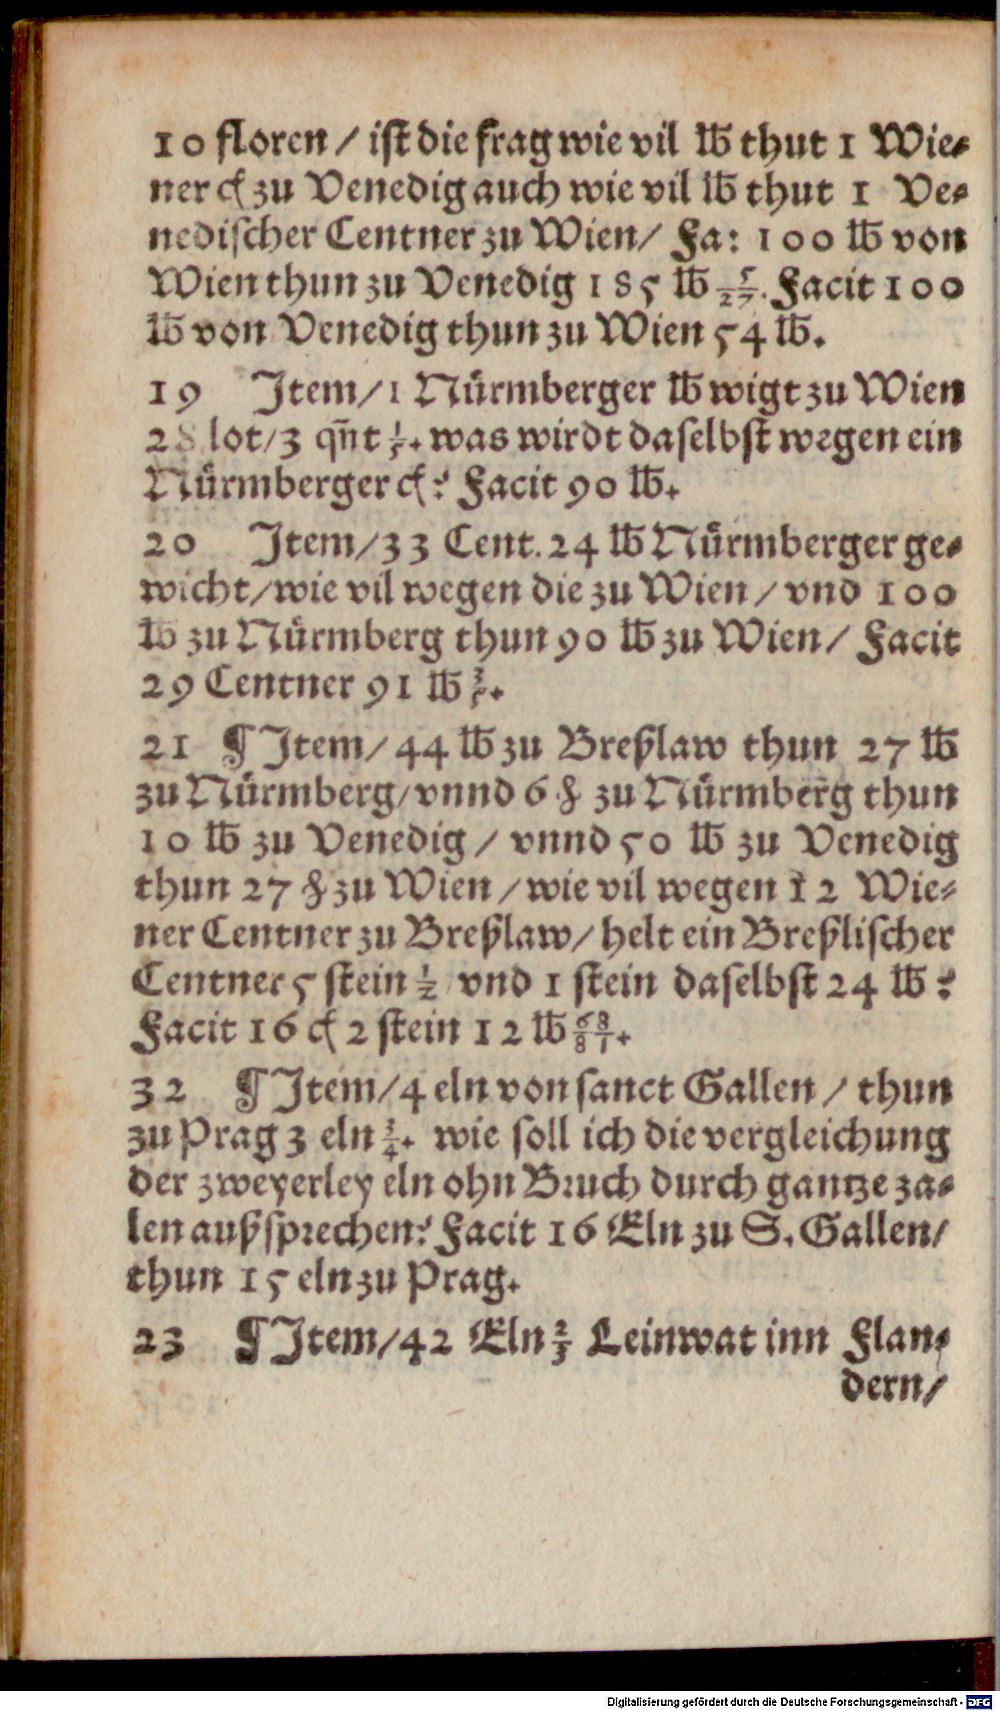 10 floren / ist die frag wie vil ℔ thut 1 Wie⸗
ner ct zu Venedig auch wie vil ℔ thut 1 Ve⸗
nedischer Centner zu Wien/ Fa: 100 ℔ von
Wien thun zu Venedig 185 ℔ 5/27. Facit 100
℔ von Venedig thun zu Wien 54 ℔.
19 Item/1 Nürmberger ℔ wigt zu Wien
28 lot/3 qn̄t 1/5. was wirdt daselbst wegen ein
Nürmberger ct? Facit 90 ℔.
20 Item/33 Cent. 24 ℔ Nürmberger ge⸗
wicht/wie vil wegen die zu Wien / vnd 100
℔ zu Nürmberg thun 90 ℔ zu Wien/ Facit
29 Centner 91 ℔ 3/5.
21 ¶ Item/ 44 ℔ zu Breßlaw thun 27 ℔
zu Nürmberg/vnnd 6 ℔ zu Nürmberg thun
10 ℔ zu Venedig / vnnd 50 ℔ zu Venedig
thun 27 ℔ zu Wien / wie vil wegen 12 Wie⸗
ner Centner zu Breßlaw/ helt ein Breßlischer
Centner 5 stein 1/2 vnd 1 stein daselbst 24 ℔?
Facit 16 ct 2 stein 12 ℔ 68/81.
32 ¶ Item/4 eln von sanct Gallen / thun
zu Prag 3 eln 3/4. wie soll ich die vergleichung
der zweyerley eln ohn Bruch durch gantze za⸗
len außsprechen? Facit 16 Eln zu S. Gallen/
thun 15 eln zu Prag.
23 ¶ Item/42 Eln 2/3 Leinwat inn Flan⸗
dern/
Digitalisierung gefördert durch die Deutsche Forschungsgemeinschaft - DFG